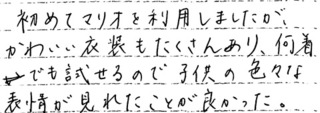 初めてマリオを利用しましたが、
かわいい衣装もたくさんあり、何着
でも試せるので子供の色々な
表情が見れたことが良かった。